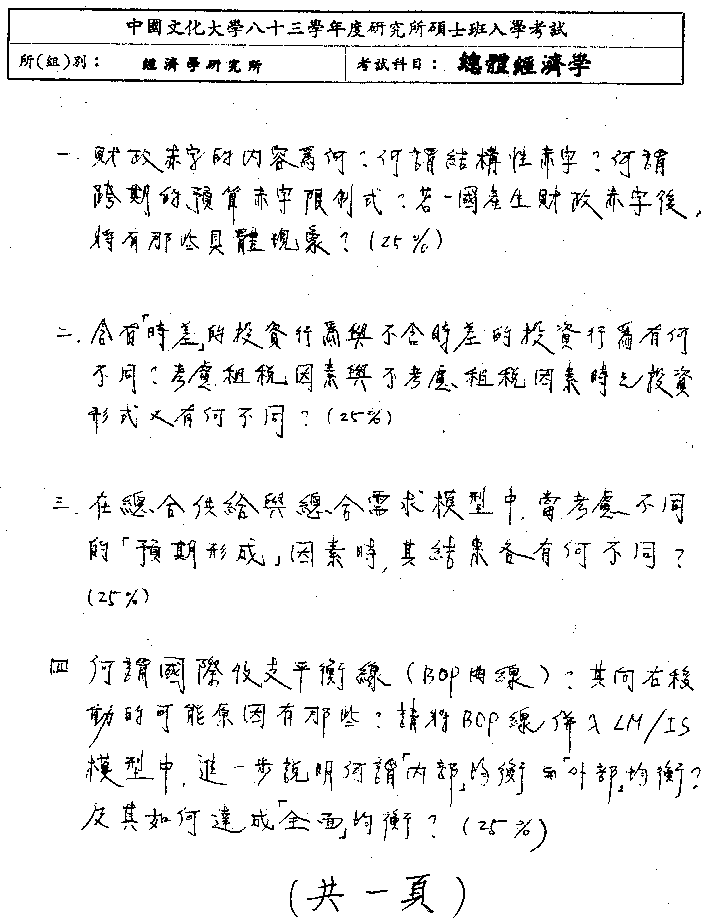 中國文化大學八十三學年度研究所碩士班入學考試
所(組)別： 經濟學研究所 考試科目： 總體經濟學
一. 財政赤字的內容為何？何謂結構性赤字？何謂
跨期的預算赤字限制式？若一國產生財政赤字後，
將有那些具體現象？(25%)
二. 含有「時差」的投資行為與不含時差的投資行為有何
不同？考慮租稅因素與不考慮租稅因素時之投資
形式又有何不同？(25%)
三. 在總合供給與總合需求模型中，當考慮不同
的「預期形成」因素時，其結果各有何不同？
(25%)
四 何謂國際收支平衡線 (BOP曲線)？其向右移
動的可能原因有那些？請將BOP線併入LM/IS
模型中，進一步說明何謂「內部」均衡與「外部」均衡？
及其如何達成「全面」均衡？(25%)
(共一頁)